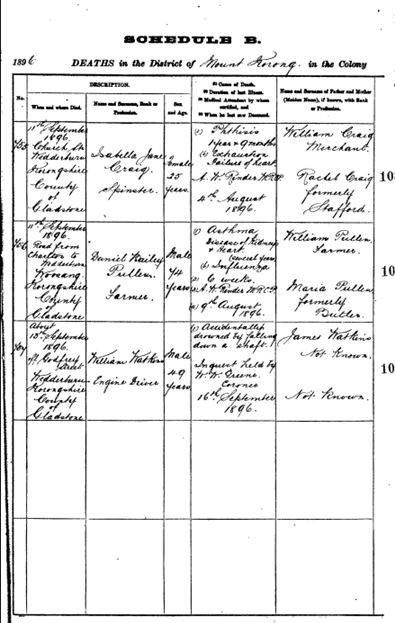 SCHEDULE B.
1896 DEATHS in the District of Mount Korong in the Colony
DESCRIPTION.
No.
When and where Died.
Name and Surname, Rank or Profession.
Sex and Age.
(1) Cause of Death.
(2) Duration of last Illness.
(3) Medical Attendant by whom certified, and
(4) When he last saw Deceased.
Name and Surname of Father and Mother (Maiden Name), if known, with Rank or Profession.
11th September
1896
Church St
Wedderburn
Korongshire
County
of
Gladstone
Isabella Jane
Craig
Spinster
Female
25
years
(1) Phthisis
1 year & 9 months
(2) Exhaustion
Failure of heart
4th August
1896.
William Craig
Merchant.
Rachel Craig
formerly
Stafford.
10
11th September
1896
Road from
Charlton to
Wedderburn
Korongshire
County
of
Gladstone
Daniel
Pullen
Farmer.
Male
44
years
(1) Asthma
Disease of Kidneys
& Heart.
(several years)
(b) Influenza
(2) 6 weeks.
(4) 9th August
1896.
William Pullen
Farmer.
Maria Pullen
formerly
Butler.
10
About
13th September
1896
off Godfrey
Street
Wedderburn
Korongshire
County
of
Gladstone
William Watkins
Engine Driver
Male
49
years
(1) Accidentally
drowned by falling
down a shaft.
Inquest held by
W. W. Greene
Coroner
16th September
1896.
James Watkins
Not Known.
Not Known.
10